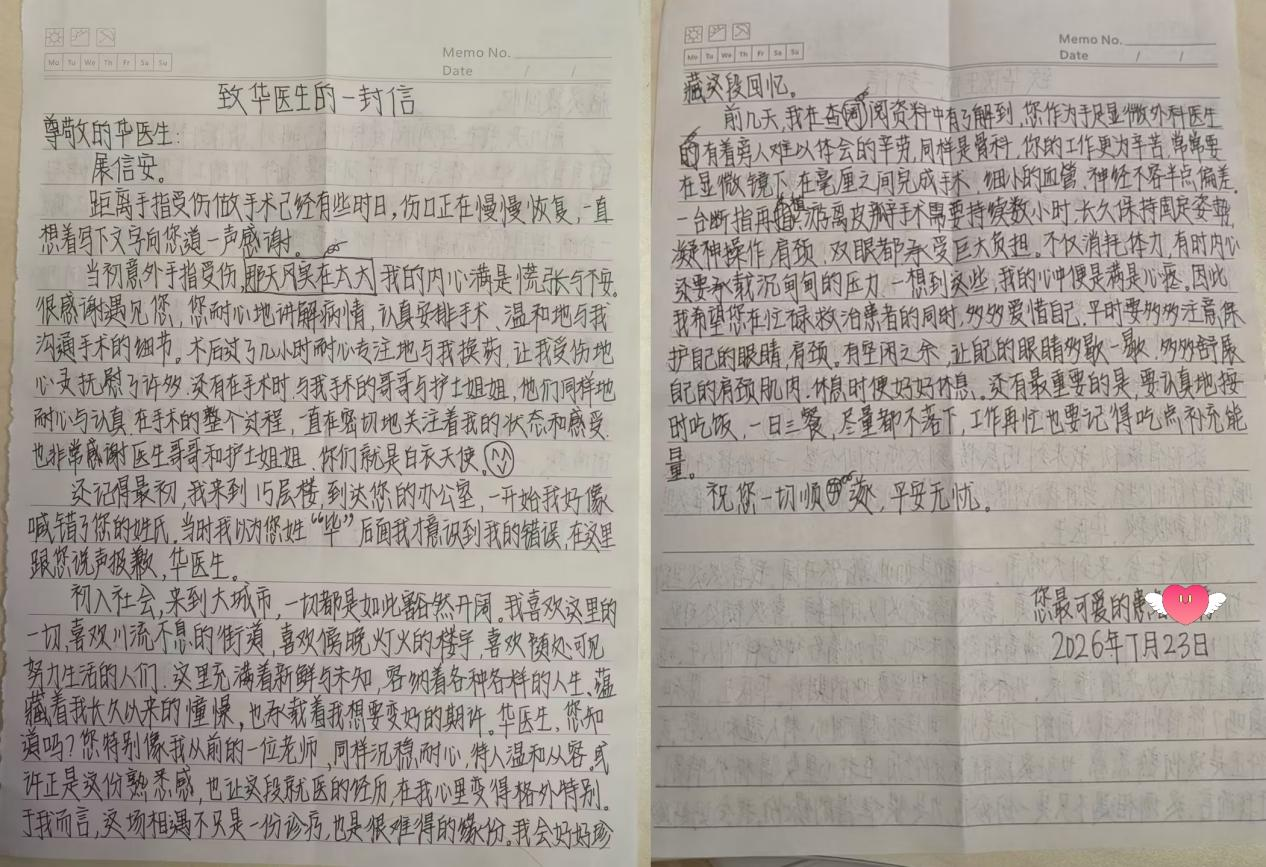 Mo Tu We Th Fr Sa Su
Memo No.
Date / /
致华医生的一封信
尊敬的华医生:
展信安。
距离手指受伤做手术已经有些时日,伤口正在慢慢恢复,一直
想着写下文字向您道一声感谢。
当初意外手指受伤,那天风实在太大,我的内心满是慌张与不安。
很感谢遇见您,您耐心地讲解病情,认真安排手术、温和地与我
沟通手术的细节。术后过了几小时耐心专注地与我换药,让我受伤地
心灵抚慰了许多.还有在手术时,与我手术的哥哥与护士姐姐,他们同样地
耐心与认真.在手术的整个过程,一直在密切地关注着我的状态和感受.
也非常感谢医生哥哥和护士姐姐.你们就是白衣天使。
还记得最初,我来到15层楼到达您的办公室,一开始我好像
喊错了您的姓氏.当时我以为您姓“毕”后面我才意识到我的错误,在这里
跟您说声抱歉,华医生。
初入社会,来到大城市,一切都是如此豁然开阔。我喜欢这里的
一切,喜欢川流不息的街道,喜欢傍晚灯火的楼宇,喜欢随处可见
努力生活的人们.这里充满着新鲜与未知,容纳着各种各样的人生、蕴
藏着我长久以来的憧憬,也承载着我想要变好的期许。华医生,您知
道吗?您特别像我从前的一位老师,同样沉稳耐心,待人温和从容。或
许正是这份熟悉感,也让这段就医的经历,在我心里变得格外特别。
于我而言,这场相遇不只是一份诊疗,也是很难得的缘份。我会好好珍
Mo Tu We Th Fr Sa Su
Memo No.
Date / /
藏这段回忆。
前几天,我在查阅资料中有了解到,您作为手足显微外科医生
有着旁人难以体会的辛劳,同样是骨科,你的工作更为辛苦.常常要
在显微镜下,在毫厘之间完成手术.细小的血管、神经不容半点偏差.
一台断指再植、游离皮瓣手术需要持续数小时.长久保持固定姿势
凝神操作,肩颈、双眼都承受巨大负担。不仅消耗体力,有时内心
还要承载沉甸甸的压力.一想到这些,我的心中便是满是心疼。因此
我希望您在忙碌救治患者的同时,多多爱惜自己.平时要多多注意,保
护自己的眼睛,肩颈。有空闲之余,让自己的眼睛多歇一歇.多多舒展
自己的肩颈肌肉.休息时便好好休息。还有最重要的是,要认真地按
时吃饭,一日三餐,尽量都不落下,工作再忙也要记得吃点补充能
量。
祝您一切顺遂,平安无忧。
您最可爱的患
2026年7月23日